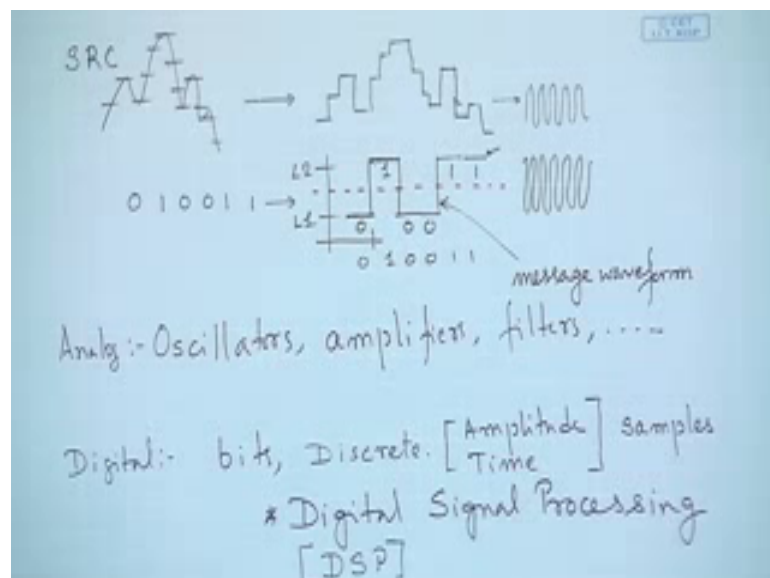 SRC
L2
1
1 1
0 1 0 0 1 1
L1
0
0 0
0 1 0 0 1 1
message waveform
Analog :- Oscillators, amplifiers, filters, .....
Digital:- bits, Discrete. [Amplitude Time] Samples
* Digital Signal Processing
[DSP]